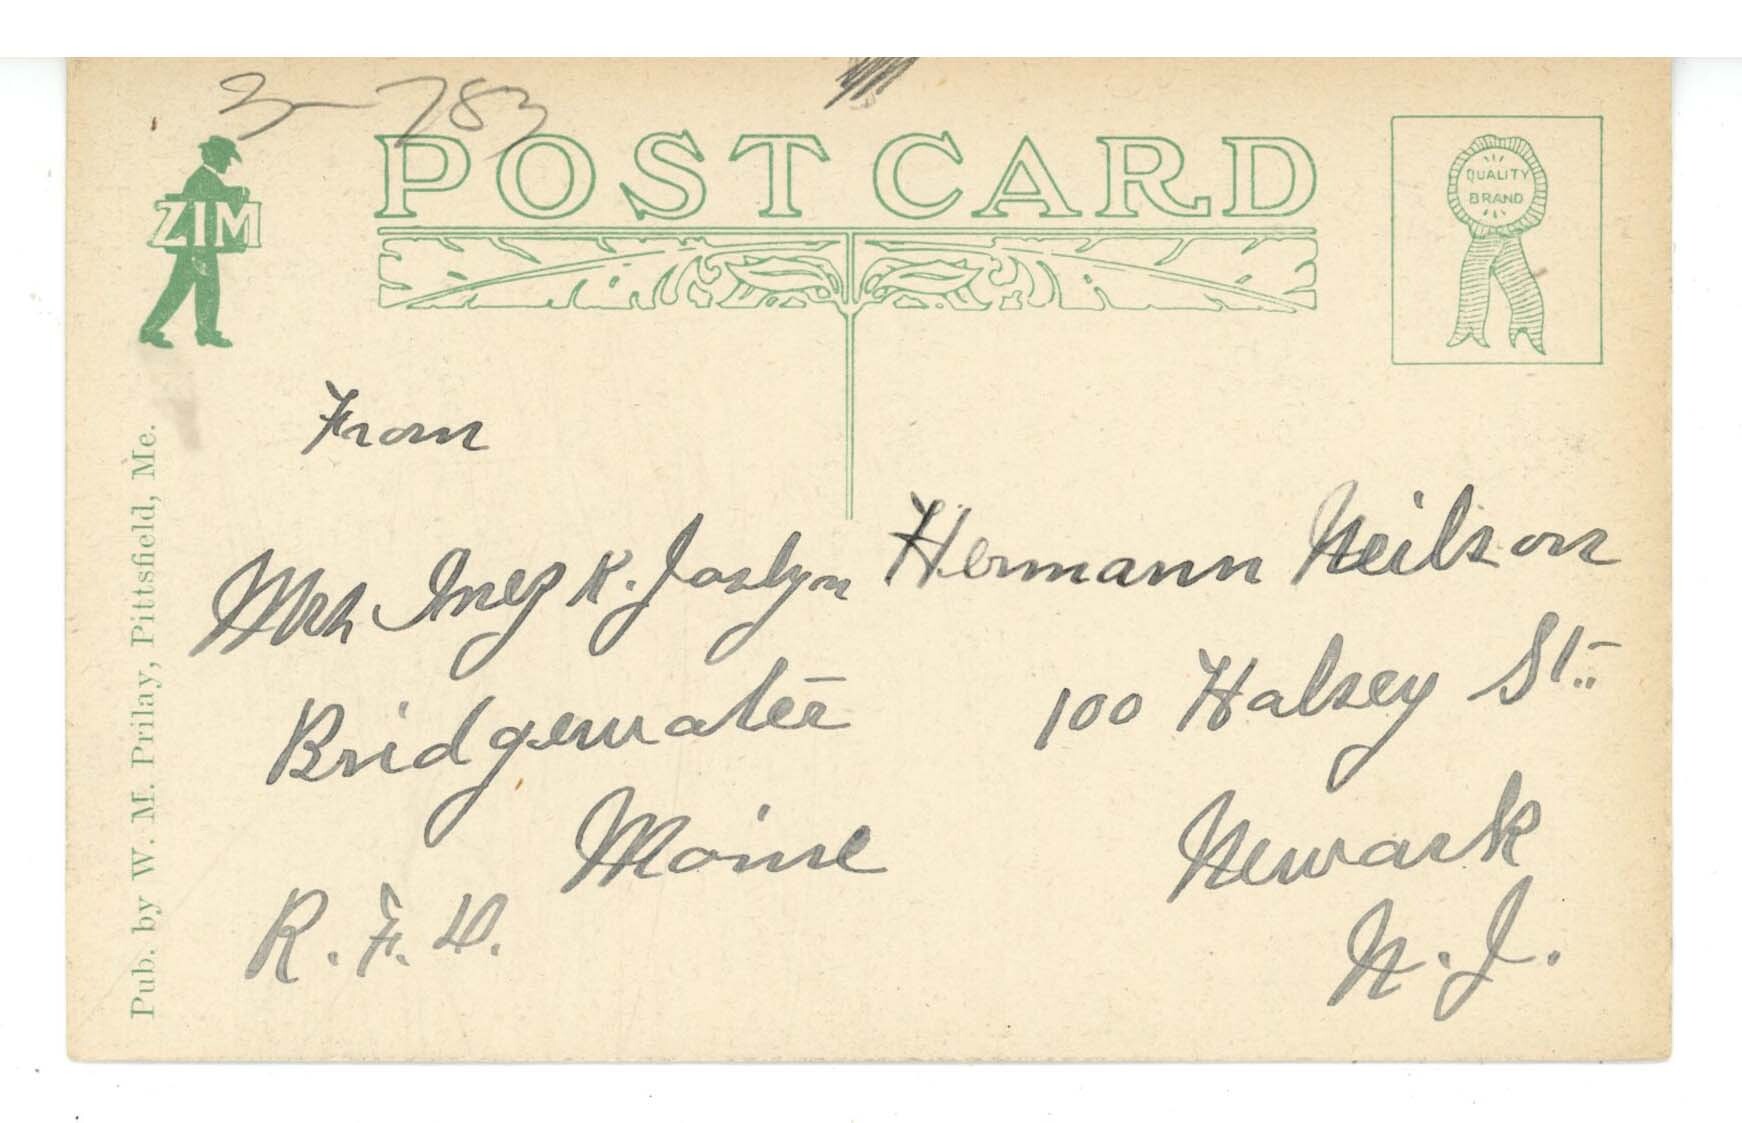 3-783
POST CARD
ZIM
QUALITY
BRAND
From
Mrs Inez K. Joslyn
Bridgewater
Maine
R. F. D.
Hermann Neilson
100 Halsey St.
Newark
N. J.
Pub. by W. M. Prilay, Pittsfield, Me.